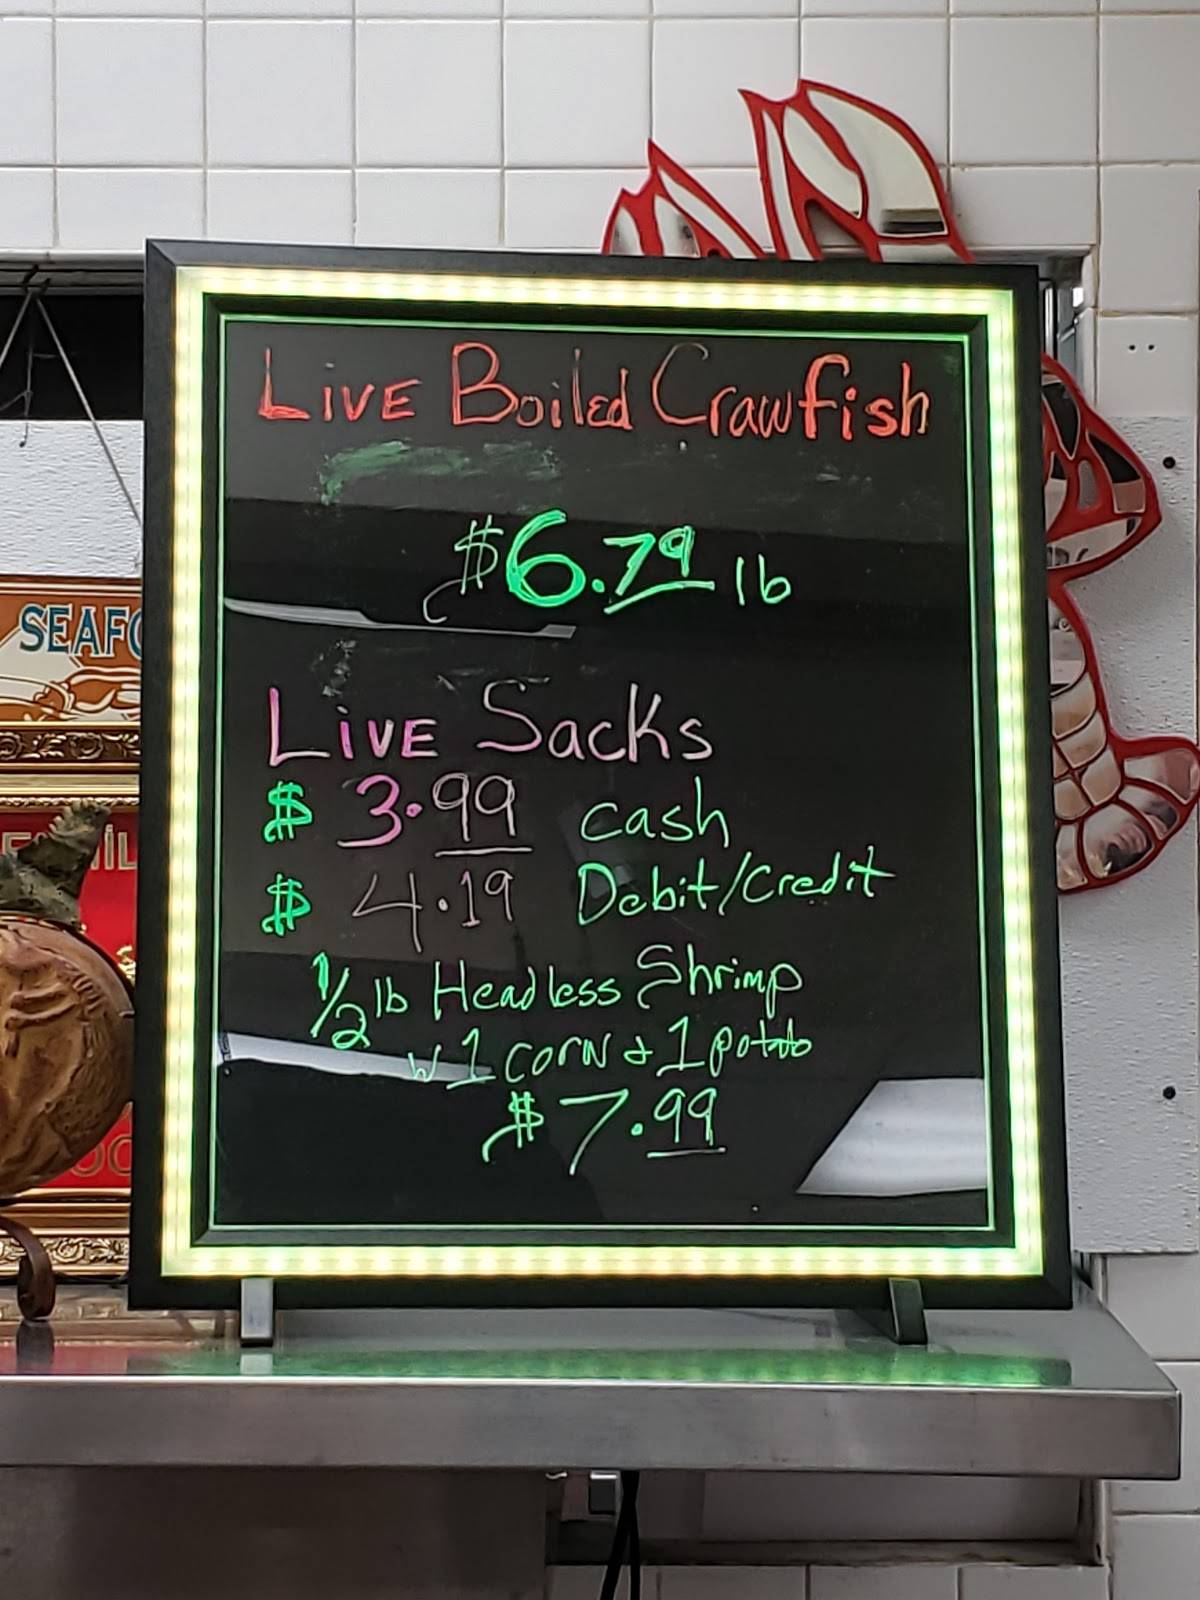 LIVE Boiled Crawfish
$6.79 lb
LIVE Sacks
$ 3.99 cash
$ 4.19 Debit/Credit
1/2 lb Headless Shrimp
w 1 corn & 1 potato
$7.99
SEAFO